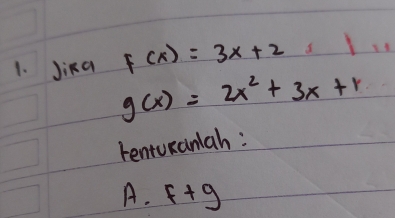 1. Jika f(x) = 3x + 2
g(x) = 2x² + 3x +
tentukanlah :
A. f + g